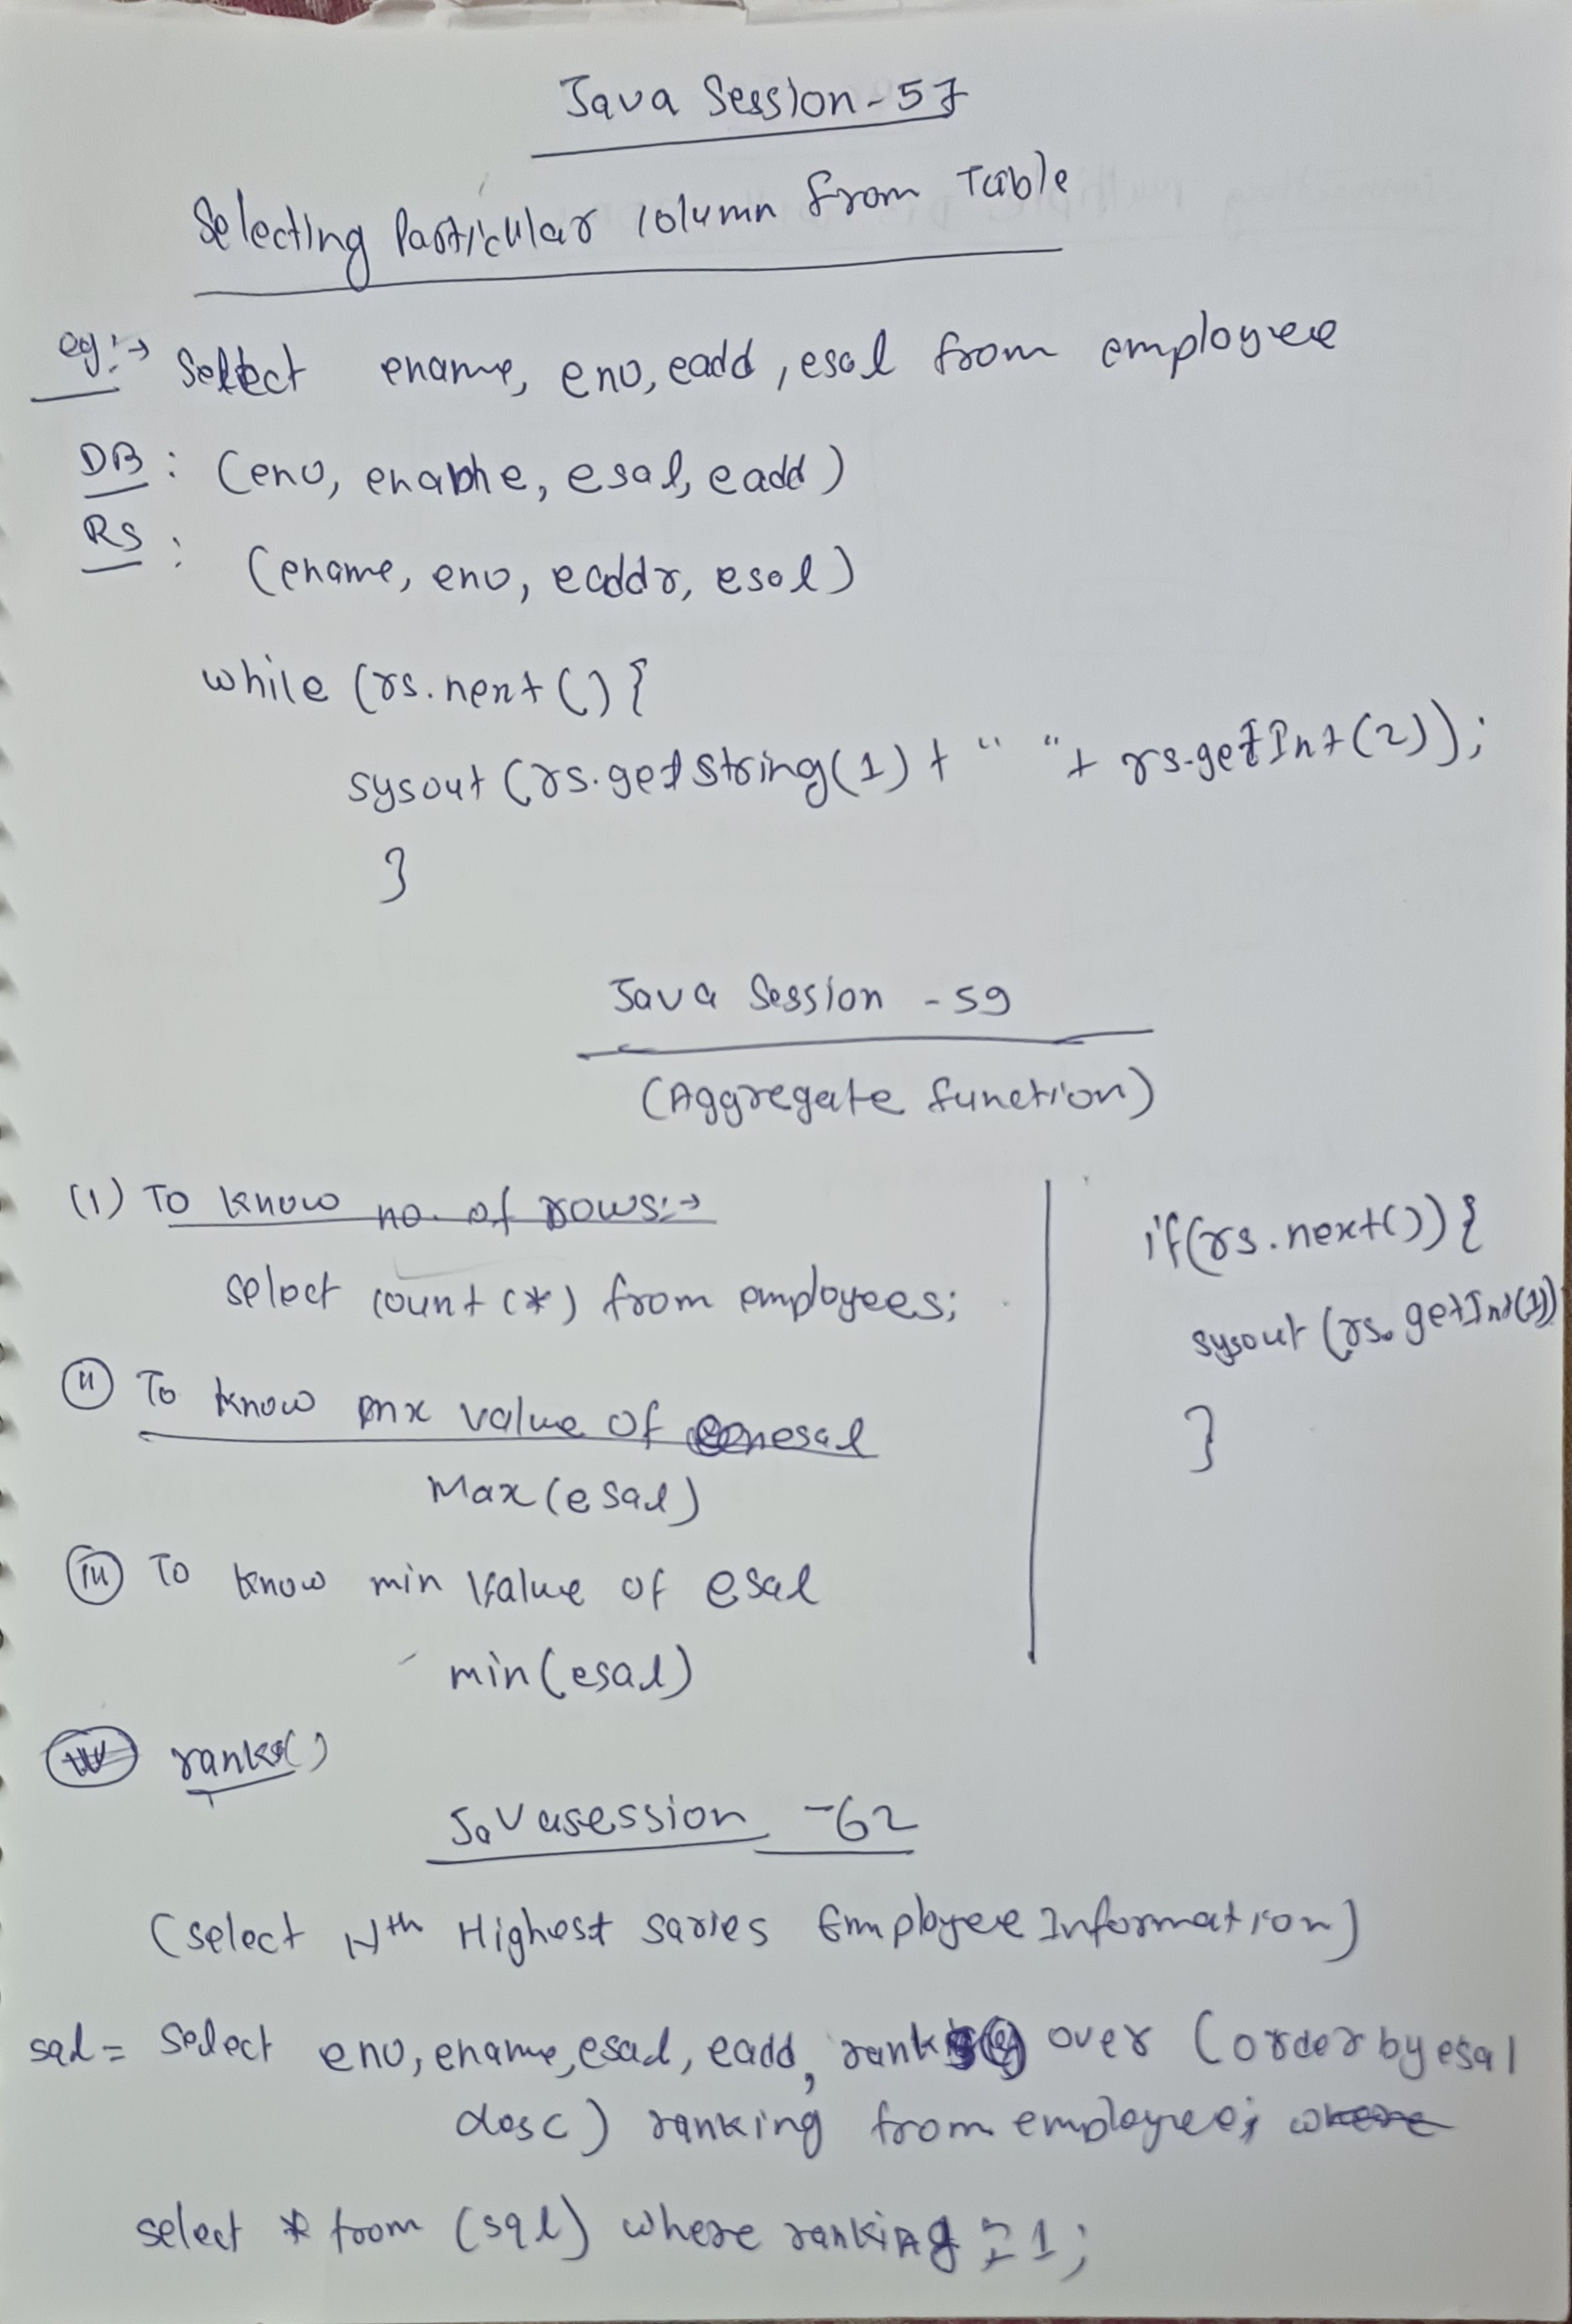 Java Session - 57
Selecting Particular column from Table
eg:→ Select ename, eno, eadd, esal from employee
DB : (eno, ename, esal, eadd)
RS : (ename, eno, eaddr, esal)
while (rs.next() {
sysout (rs.getString(1) + " " + rs.getInt(2));
}
Java Session - 59
(Aggregate function)
(i) To know no. of rows:→
select count (*) from employees;
(ii) To know mx value of esal
Max (esal)
(iii) To know min value of esal
min (esal)
if(rs.next()) {
sysout (rs.getInt(1))
}
(iv) ranks()
Javasession - 62
(select Nth Highest saries Employee Information)
sql = Select eno, ename, esal, eadd, rank() over (order by esal
desc) ranking from employee;
select * from (sql) where ranking = 1;